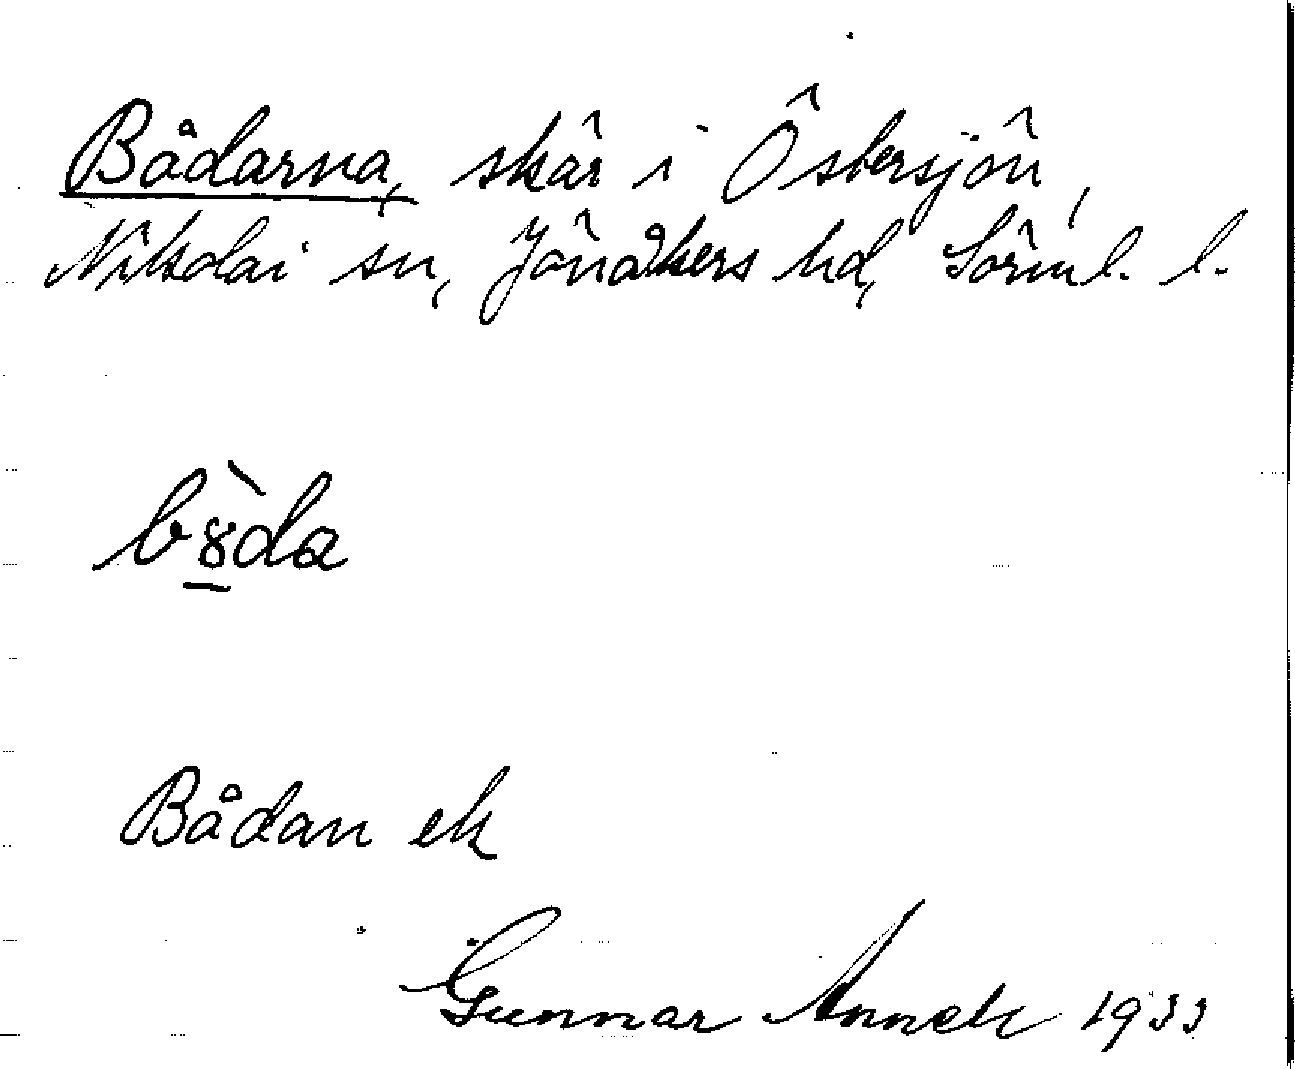 Bådarna, skär i Östersjön,
Nikolai sn, Jönåkers hd, Sörml. l.
b8̲̀da
Bådan ek
Gunnar Annell 1933